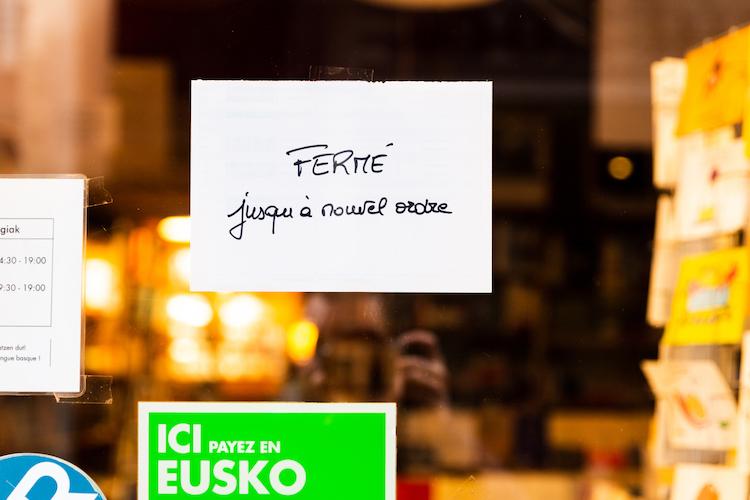 FERMÉ
jusqu'à nouvel ordre
giak
4:30 - 19:00
9:30 - 19:00
atzen dut!
ngue basque !
ICI PAYEZ EN
EUSKO